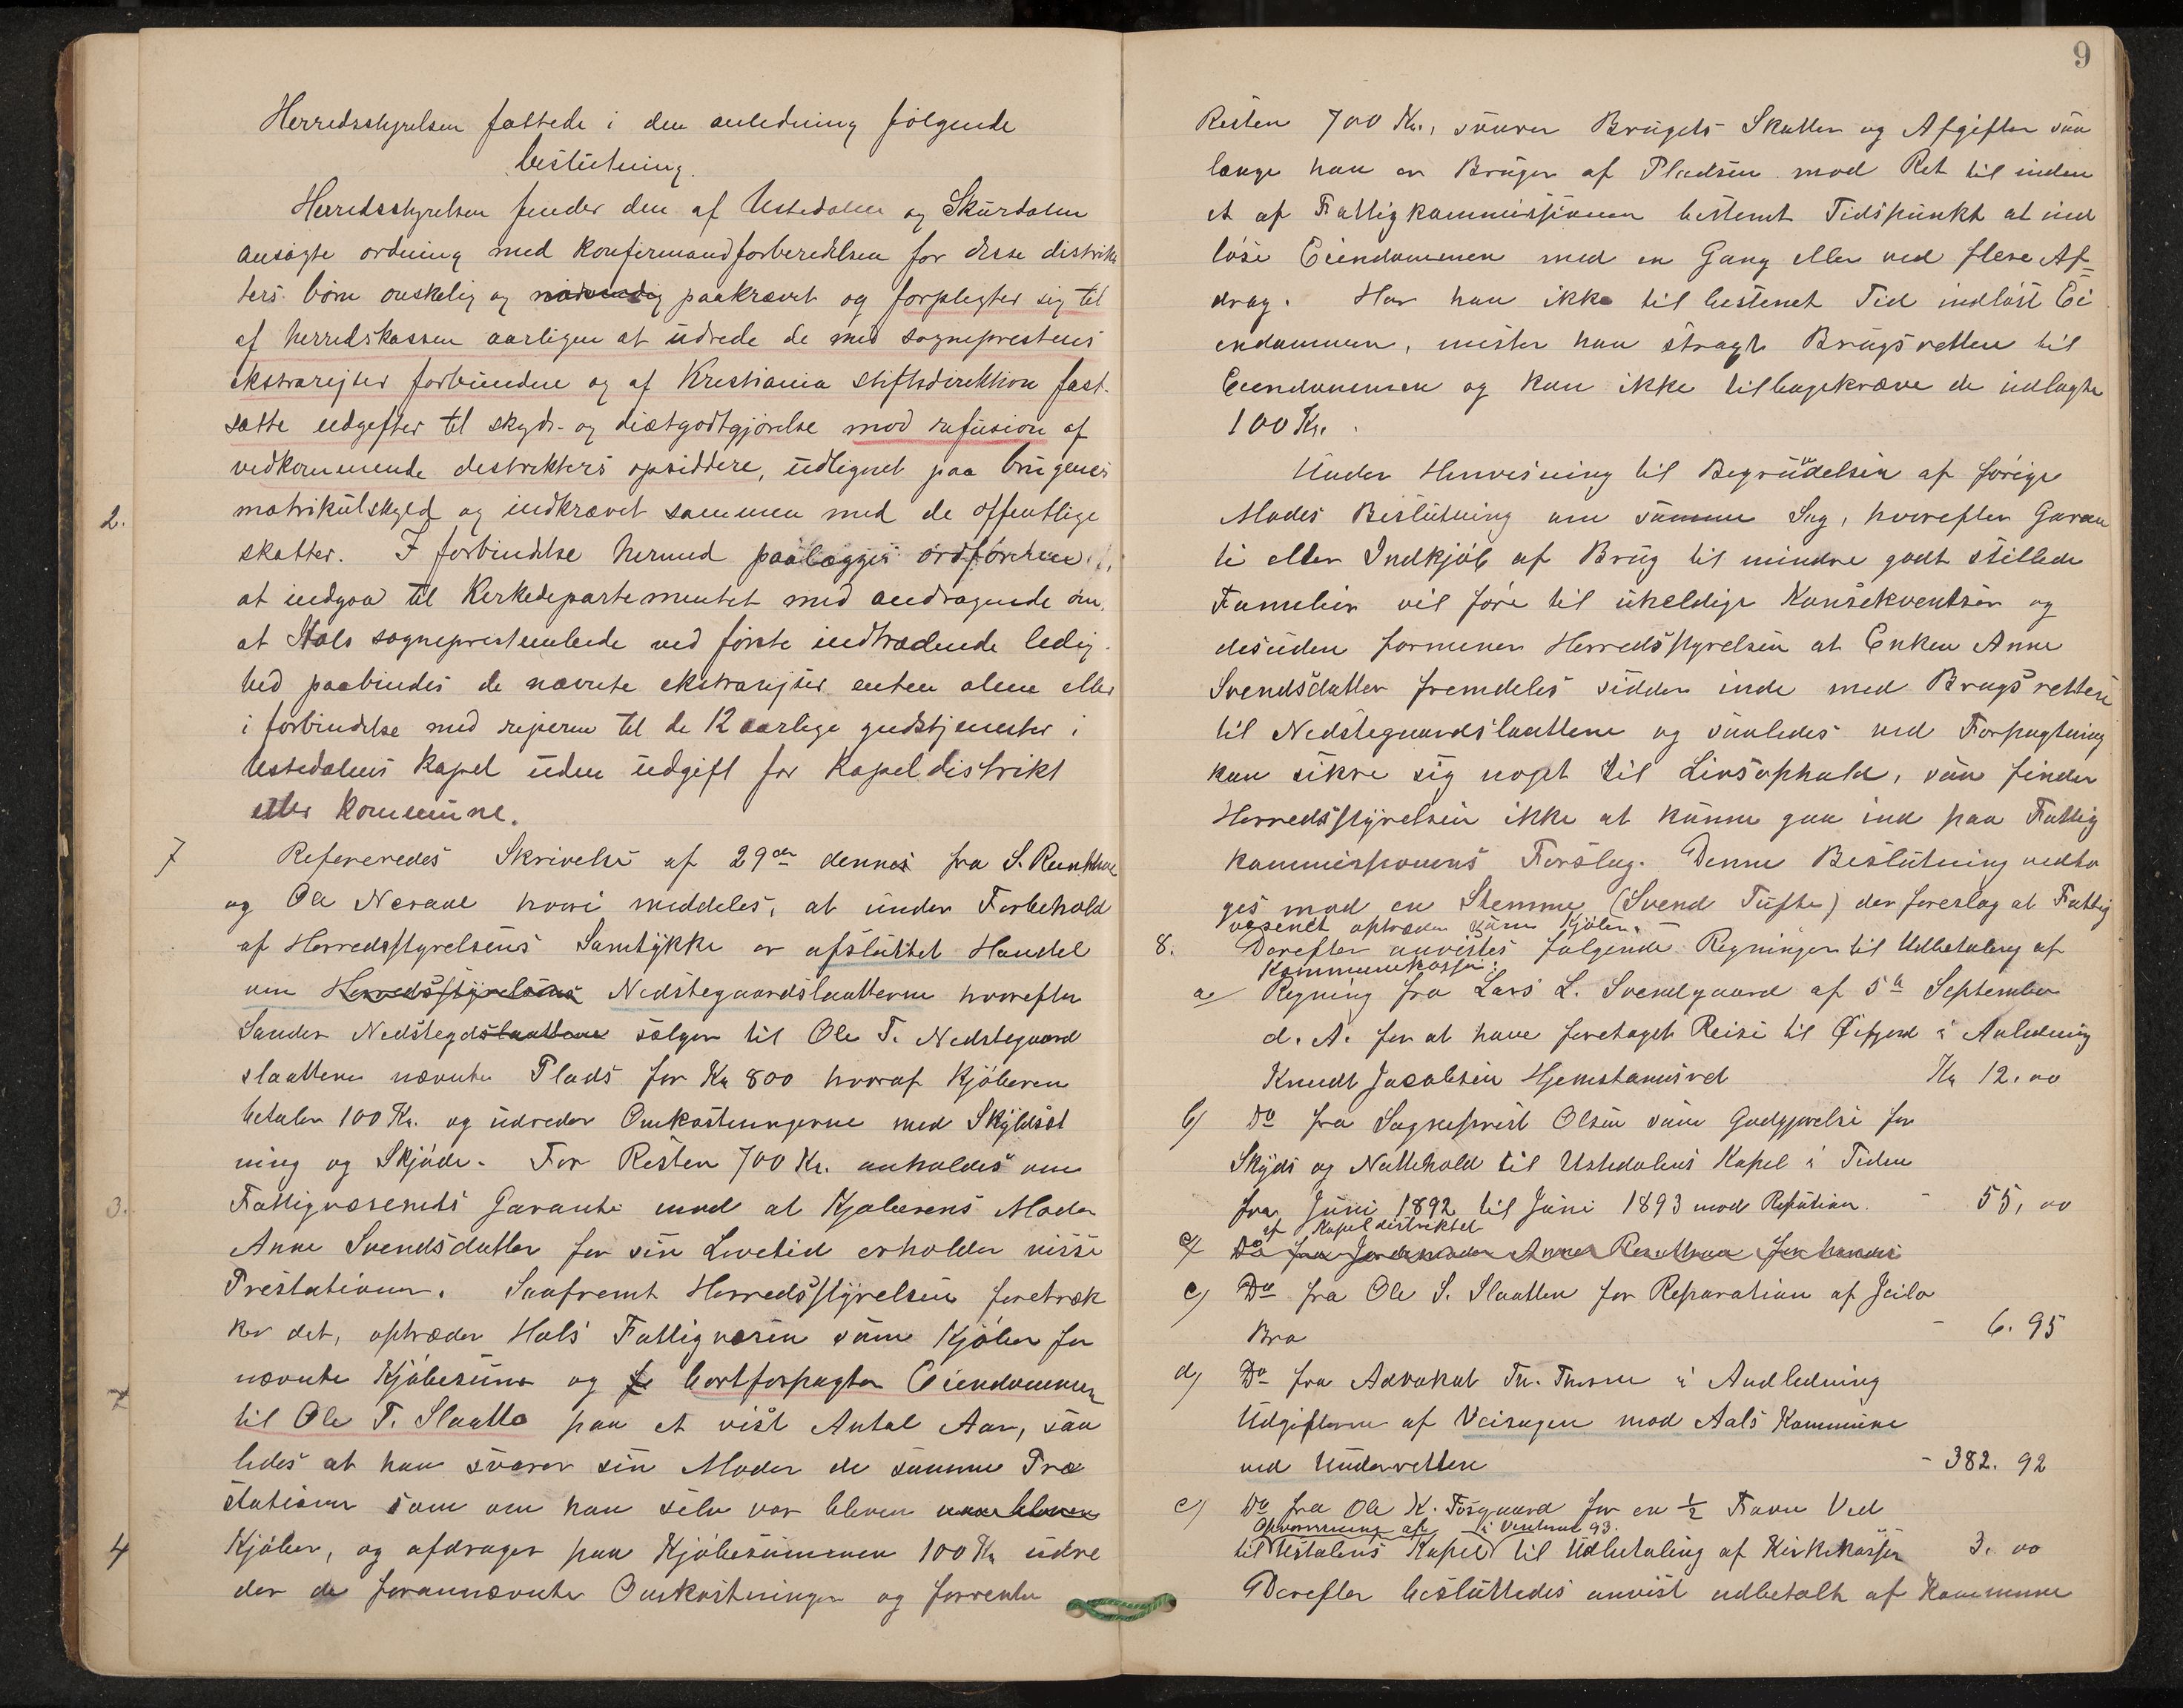 Herredsstyrelsen fattede i den anledning følgende
beslutning.
Herredsstyrelsen finder den af Ustedalen og Skurdalen
ansøgte ordning med konfirmandforberedelsen for disse distrik
ters børn ønskelig og nødvendig paakrævet og forpligter sig til
af herredskassen aarligen at udrede de med sogneprestens
ekstrareiser forbundne og af Kristiania stiftsdirektion fast-
satte udgifter til skyds- og diætgodtgjørelse mod refusion af
vedkommende distrikters opsiddere, udlignet paa brugenes
2.
matrikulskyld og indkrævet sammen med de offentlige
skatter. I forbindelse hermed paalægges ordføreren
at indgaa til Kirkedepartementet med andragende om,
at Hols sogneprestembede ved første indtrædende ledig-
hed paabindes de nævnte ekstrareiser enten alene eller
i forbindelse med reiserne til de 12 aarlige gudstjenester i
Ustedalens kapel uden udgift for kapeldistrikt
eller kommune.
7
Refereredes Skrivelse af 29de dennes fra S.
og Ole Neraal hvori meddeles, at under Forbehold
af Herredsstyrelsens Samtykke er afsluttet Handel
om Herredsstyrelsens Nedstegaardslaatterne hvorefter
Sander Nedstegdslaattene sælger til Ole T. Nedstegaard
slaattene nævnte Plads for Kr 800 hvoraf Kjøberen
betaler 100 Kr. og udreder Omkostningerne med Skyldsæt
ning og Skjøde. For Resten 700 Kr. anholdes om
3.
Fattigvæsenets Garanti mod at Kjøberens Moder
Anne Svendsdatter for sin Levetid erholder visse
Præstationer. Saafremt Herredsstyrelsen foretræk
ker det, optræder Hols Fattigvæsen som Kjøber for
nævnte Kjøbesum og fo bortforpagter Eiendommen
til Ole T. Slaatto paa et vist Antal Aar, saa
ledes at han svarer sin Moder de samme Præ
stationer som om han selv var bleven
4
Kjøber, og afdrager paa Kjøbesummen 100 Kr udre
der de forannævnte Omkostninger og forrenter
9
Resten 700 Kr., svarer Brugets Skatter og Afgifter saa
længe han er Bruger af Pladsen mod Ret til inden
et af Fattigkommissionen bestemt Tidspunkt at ind
løse Eiendommen med en Gang eller ved flere Af-
drag. Har han ikke til bestemt Tid indløst Ei
endommen, mister han stragt Brugsretten til
Eiendommen og kan ikke tilbagekræve de udlagte
100 Kr.
Under Henvisning til Begrundelsen af forige
Mødes Beslutning om samme Sag, hvorefter Garan
ti eller Indkjøb af Brug til mindre godt stillede
Familier vil føre til uheldige Konsekventser og
desuden formener Herredsstyrelsen at Enken Anne
Svendsdatter fremdeles sidder inde med Brugsretten
til Nedstegaardslaattene og saaledes ved Forpagtning
kan sikre sig noget til Livsophold, saa finder
Herredsstyrelsen ikke at kunne gaa ind paa Fattig
kommissionens Forslag. Denne Beslutning vedto
ges mod en Stemme (Svend Tufte) der foreslog at Fattig
væsenet optræder som Kjøber.
8.
Derefter anvistes følgende Regninger til Udbetaling af
Kommunekassen:
a/ Regning fra Lars L. Svendgaard af 5te September
d. A. for at have foretaget Reise til Øifjord i Anledning
Knudt Jacobsen Hjemstamsvd Kr 12.00
b) Do fra Sogneprest Olsen som Godgjørelse for
Skyds og Nattehold til Ustedalens Kapel i Tiden
fra Juni 1892 til Juni 1893 mod Refusion - 55,00
af Kapeldistriktet
c/ Do fra Jordemoder Anne
c) Do fra Ole S. Slaatten for Reparation af Jeilo
Bro - 6.95
d) Do fra Advokat Th. i Andledning
Udgifterne af Veisagen mod Aals Kommune
ved Underretten - 382.92
e) Do fra Ole K. Tosgaard for en ½ Favn Ved
Opvarmning af i Vinteren 93.
til Ustalens Kapel til Udbetaling af Kirkekassen 3.00
Derefter besluttedes anvist udbetalt af Kommune